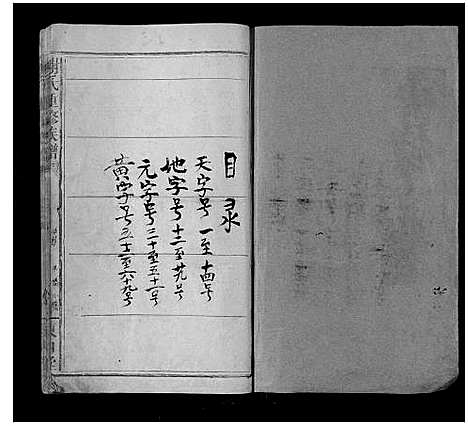 目录
天字号 一至十四号
地字号 十二至廿九号
元字号 三十至五十一号
黄字号 五十二至六十九号
氏重修族谱